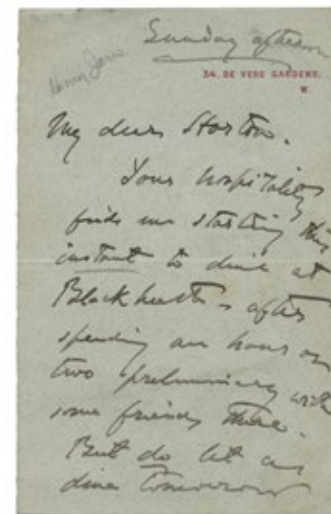 Sunday afternoon
Henry James
34, DE VERE GARDENS,
W.
My dear Horton.
Your hospitality
finds me starting this
instant to dine at
Blackheath & after
spending an hour or
two preliminary with
some friends there.
But do let us
dine tomorrow